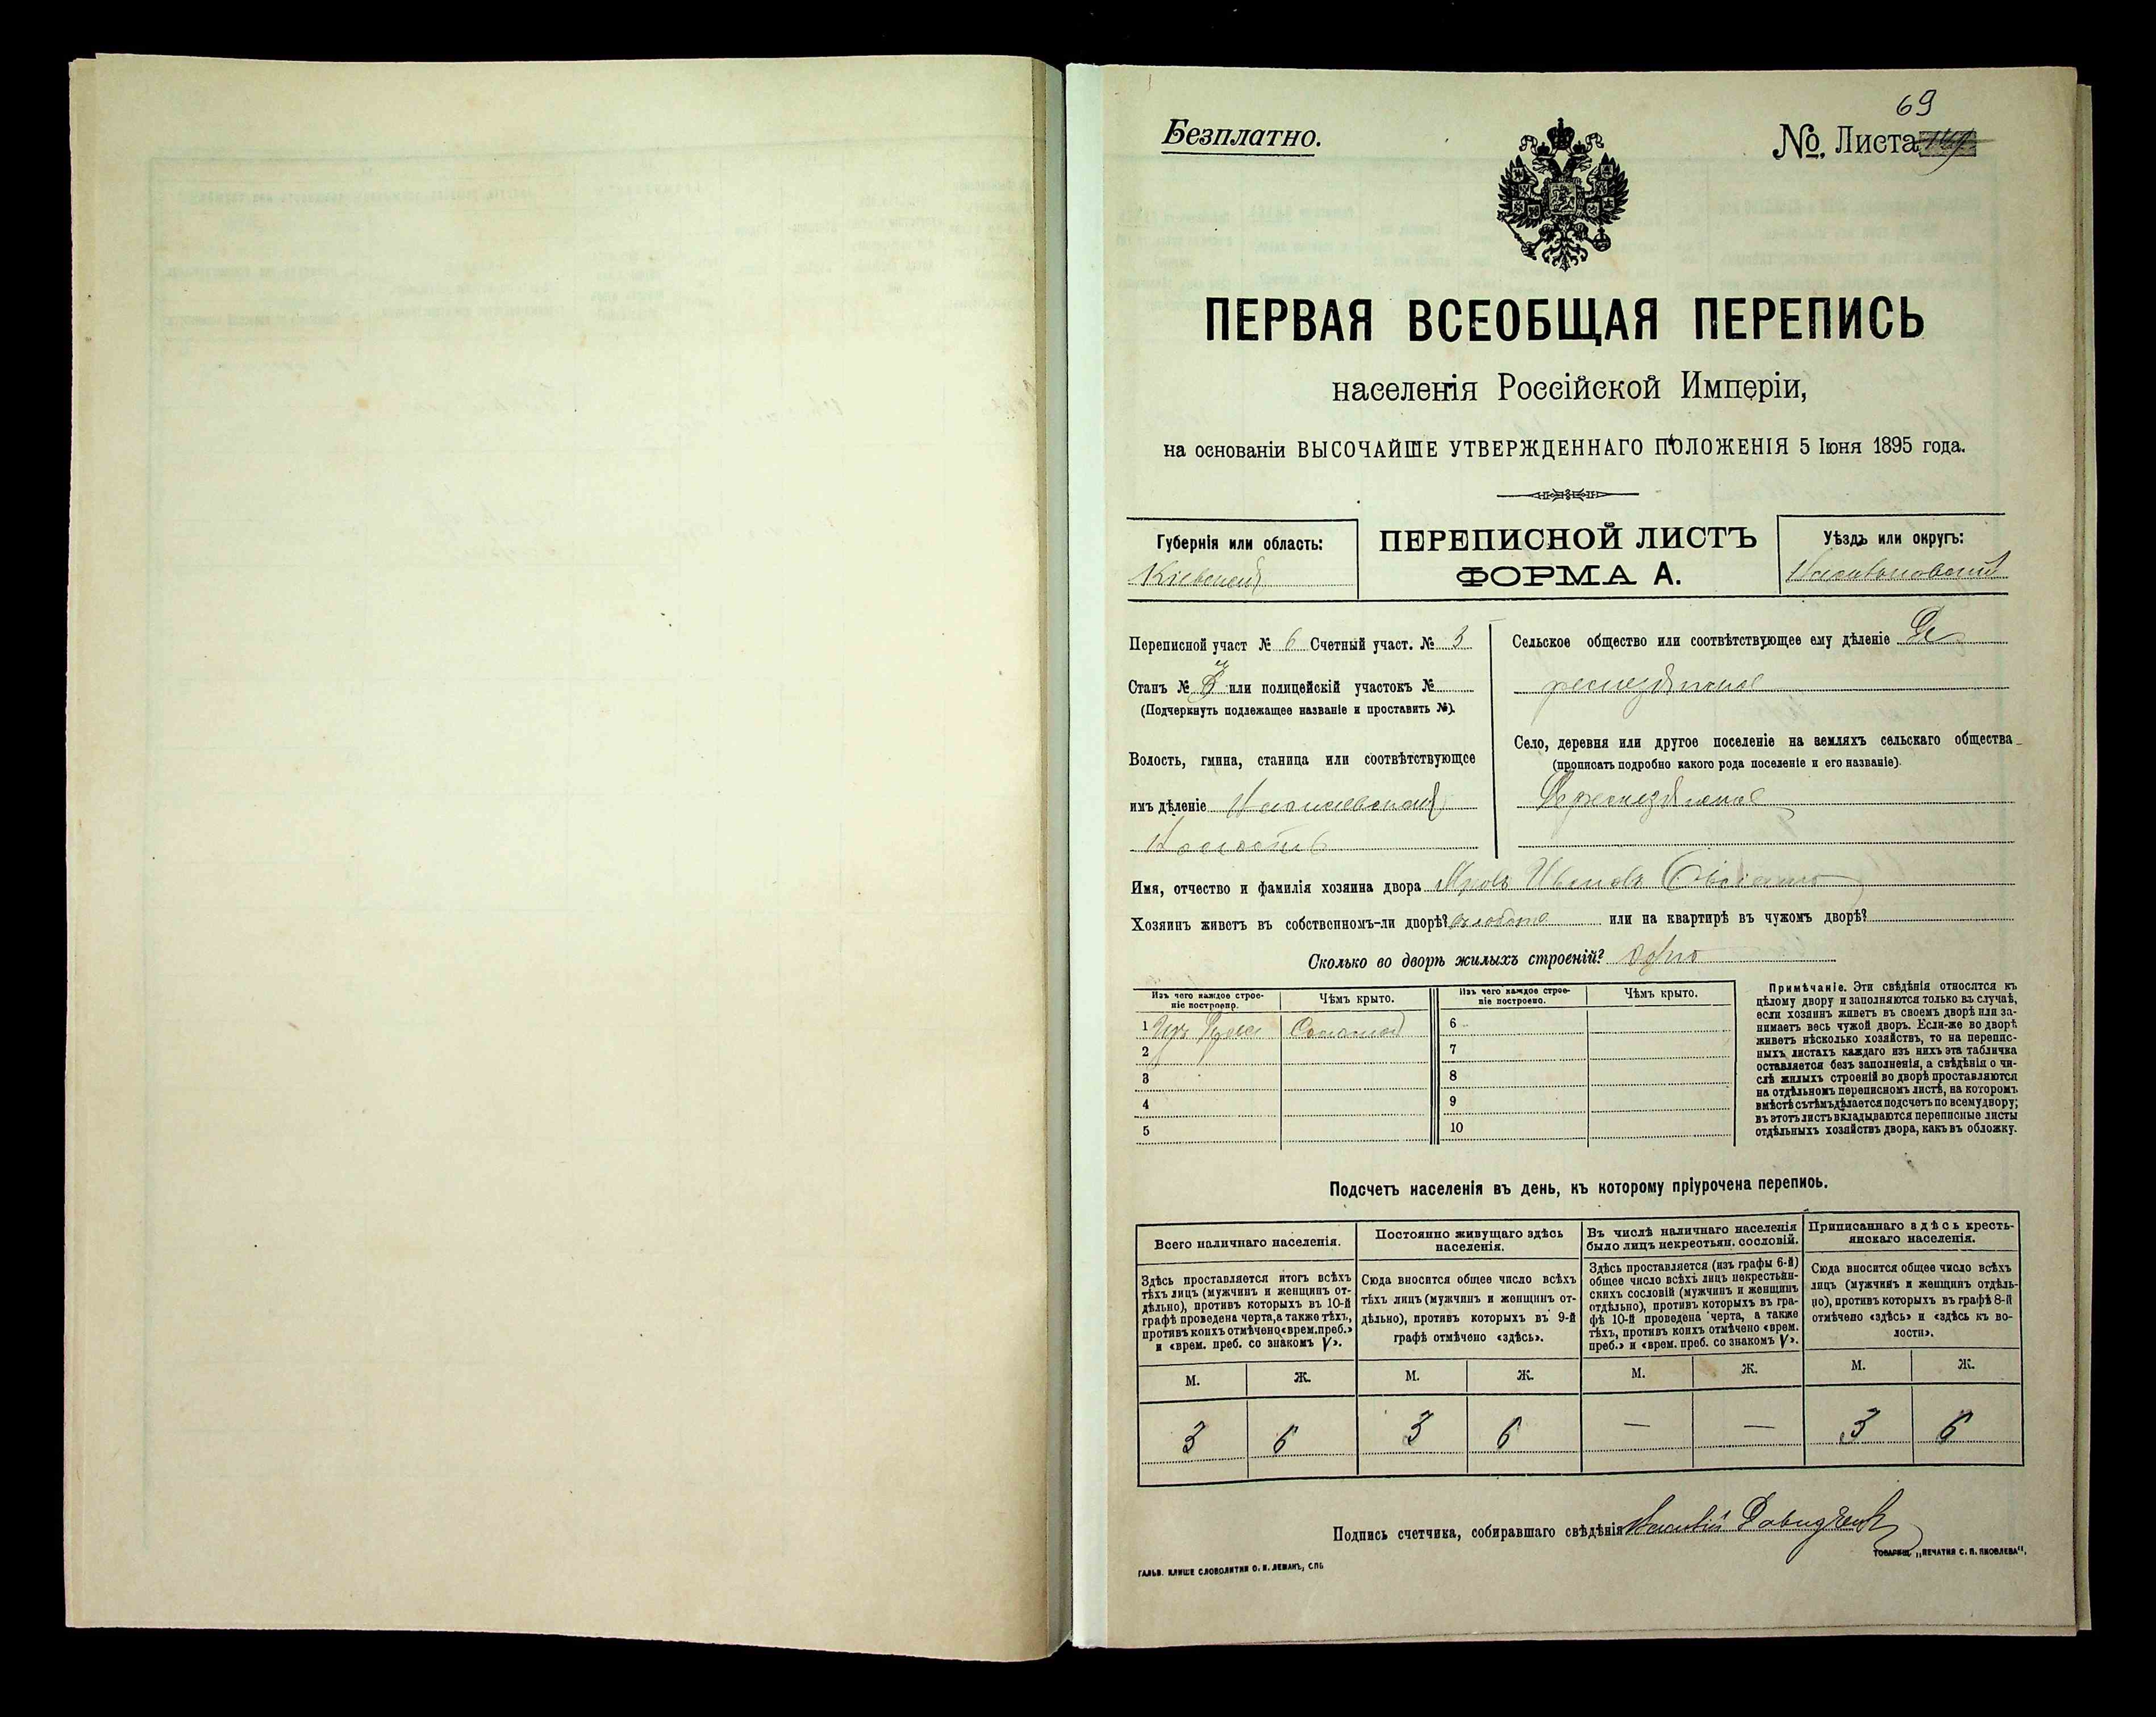 69
Безплатно.
№. Листа
ПЕРВАЯ ВСЕОБЩАЯ ПЕРЕПИСЬ
населенія Россійской Имперіи,
на основаніи ВЫСОЧАЙШЕ УТВЕРЖДЕННАГО ПОЛОЖЕНІЯ 5 Іюня 1895 года.
Губернія или область:
Кіевская
ПЕРЕПИСНОЙ ЛИСТЪ
ФОРМА А.
Уѣздъ или округъ:
Переписной участ № 6 Счетный участ. № 3
Станъ № или полицейскій участокъ №
(Подчеркнуть подлежащее названіе и проставить №).
Волость, гмина, станица или соотвѣтствующее
имъ дѣленіе
Волость
Сельское общество или соотвѣтствующее ему дѣленіе
Село, деревня или другое поселеніе на земляхъ сельскаго общества
(прописать подробно какого рода поселеніе и его названіе).
Имя, отчество и фамилія хозяина двора Ивановъ
Хозяинъ живетъ въ собственномъ-ли дворѣ? или на квартирѣ въ чужомъ дворѣ?
Сколько во дворѣ жилыхъ строеній? одно
Изъ чего каждое строе-
ніе построено.
Чѣмъ крыто.
Изъ чего каждое строе-
ніе построено.
Чѣмъ крыто.
1 Изъ Соломой
2
3
4
5
6
7
8
9
10
Примѣчаніе. Эти свѣдѣнія относятся къ
цѣлому двору и заполняются только въ случаѣ,
если хозяинъ живетъ въ своемъ дворѣ или за-
нимаетъ весь чужой дворъ. Если-же во дворѣ
живетъ нѣсколько хозяйствъ, то на перепис-
ныхъ листахъ каждаго изъ нихъ эта табличка
оставляется безъ заполненія, а свѣдѣнія о чи-
слѣ жилыхъ строеній во дворѣ проставляются
на отдѣльномъ переписномъ листѣ, на которомъ
вмѣстѣ съ тѣмъ дѣлается подсчетъ по всему двору;
въ этотъ листъ вкладываются переписные листы
отдѣльныхъ хозяйствъ двора, какъ въ обложку.
Подсчетъ населенія въ день, къ которому пріурочена перепись.
Всего наличнаго населенія.
Здѣсь проставляется итогъ всѣхъ
тѣхъ лицъ (мужчинъ и женщинъ от-
дѣльно), противъ которыхъ въ 10-й
графѣ проведена черта, а также тѣхъ,
противъ коихъ отмѣчено «врем. преб.»
и «врем. преб. со знакомъ V».
Постоянно живущаго здѣсь
населенія.
Сюда вносится общее число всѣхъ
тѣхъ лицъ (мужчинъ и женщинъ от-
дѣльно), противъ которыхъ въ 9-й
графѣ отмѣчено «здѣсь».
Въ числѣ наличнаго населенія
было лицъ некрестьян. сословій.
Здѣсь проставляется (изъ графы 6-й)
общее число всѣхъ лицъ некрестьян-
скихъ сословій (мужчинъ и женщинъ
отдѣльно), противъ которыхъ въ гра-
фѣ 10-й проведена черта, а также
тѣхъ, противъ коихъ отмѣчено «врем.
преб.» и «врем. преб. со знакомъ V».
Приписаннаго здѣсь кресть-
янскаго населенія.
Сюда вносится общее число всѣхъ
лицъ (мужчинъ и женщинъ отдѣль-
но), противъ которыхъ въ графѣ 8-й
отмѣчено «здѣсь» и «здѣсь къ во-
лости».
М. Ж. М. Ж. М. Ж. М. Ж.
3 6 3 6 — — 3 6
Подпись счетчика, собиравшаго свѣдѣнія
ГАЛЬВ. КЛИШЕ СЛОВОЛИТНИ О. И. ЛЕМАНЪ, СПБ
ТОВАРИЩ. „ПЕЧАТНЯ С. П. ЯКОВЛЕВА“.